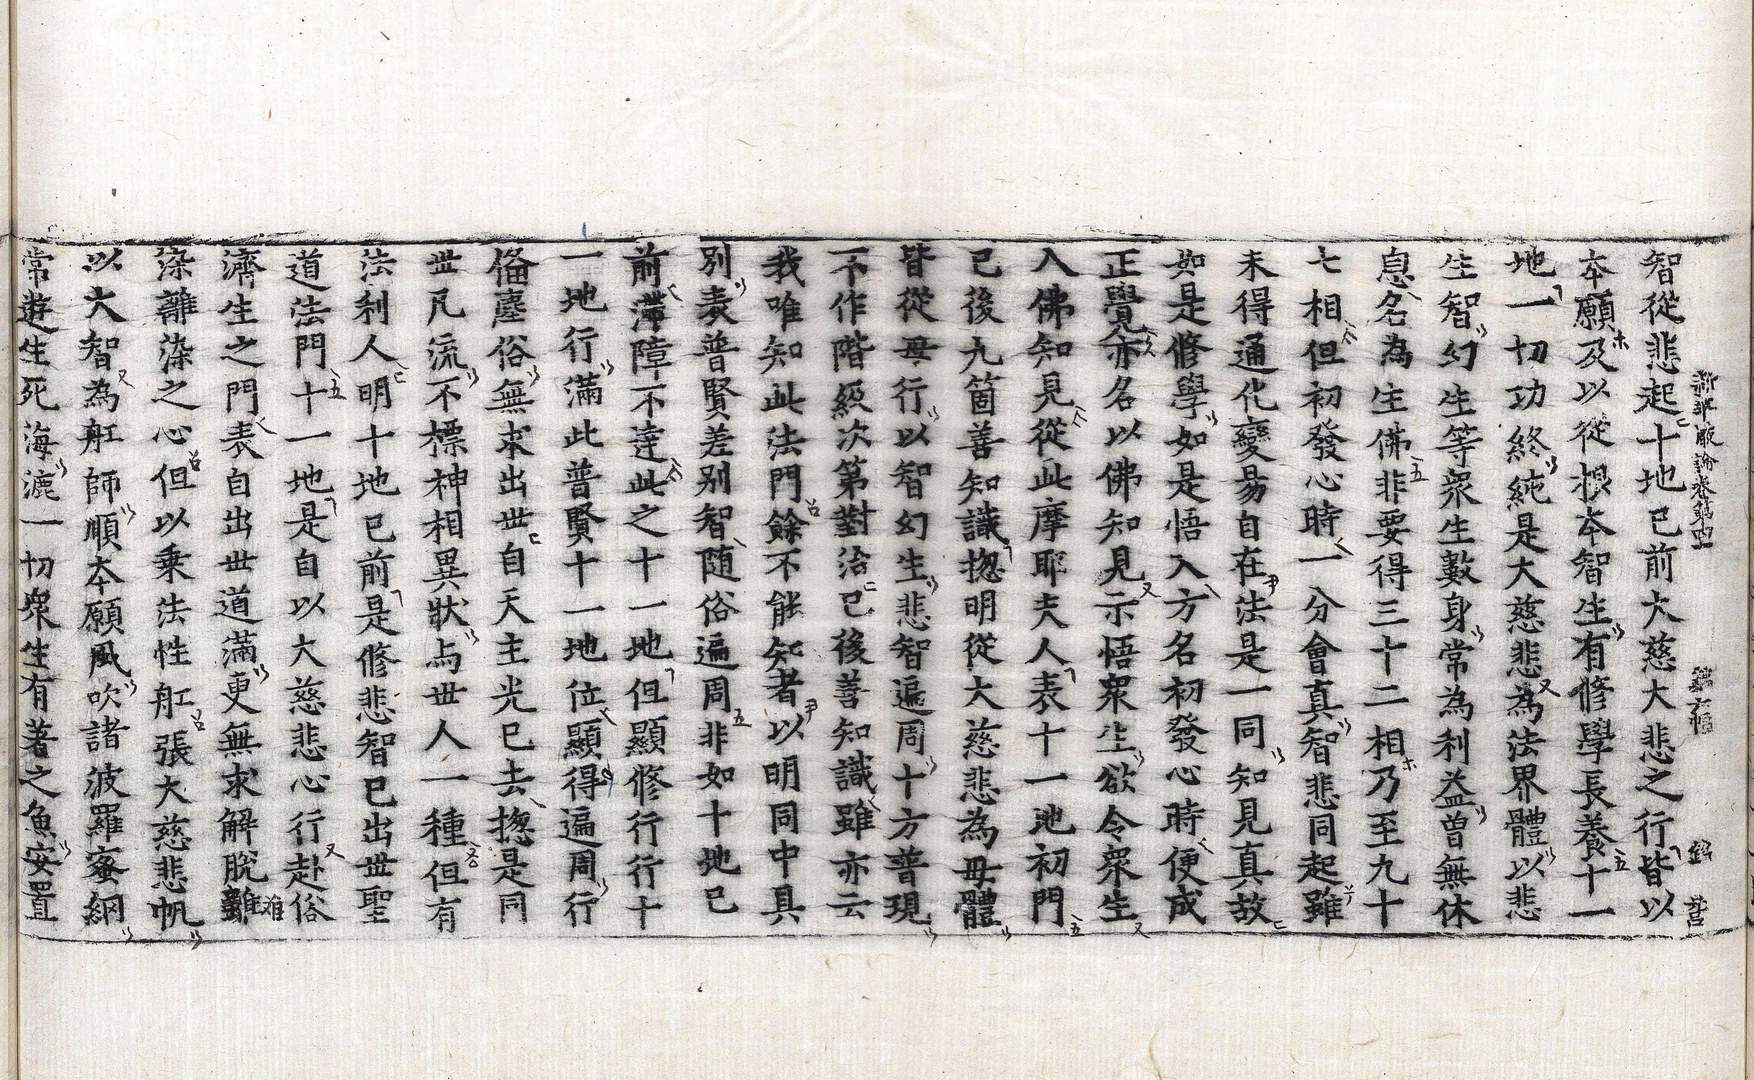 智從悲起十地已前大慈大悲之行皆以
本願及以從根本智生有修學長養十一
地一切功終純是大慈悲為法界體以悲
生智幻生等衆生數身常為利益曽無休
息名為生佛非要得三十二相乃至九十
七相但初發心時一分會真智悲同起雖
未得通化變易自在法是一同知見真故
如是修學如是悟入方名初發心時便成
正覺亦名以佛知見示悟衆生欲令衆生
入佛知見從此摩耶夫人表十一地初門
已後九箇善知識揔明從大慈悲為母體
皆從母行以智幻生悲智遍周十方普現
不作階級次第對治已後善知識雖亦云
我唯知此法門餘不能知者以明同中具
別表普賢差別智随俗遍周非如十地已
前滯障不達此之十一地但顯修行行十
一地行滿此普賢十一地位顯得遍周行
俻塵俗無求出世自天主光已去揔是同
世凡流不標神相異狀与世人一種但有
法利人明十地已前是修悲智已出世聖
道法門十一地是自以大慈悲心行赴俗
濟生之門表自出世道滿更無求解脫離
染離染之心但以乗法性舡張大慈悲帆
以大智為舡師順本願風吹諸波羅蜜網
常遊生死海漉一切衆生有著之魚安置